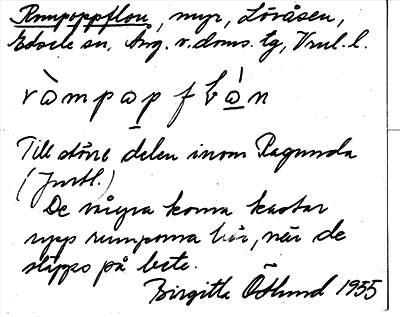 Rompoppflon, myr, Lövåsen,
Edsele sn, Ång. v.doms. lg, Vrul. l.
ròmpopflón
Till större delen inom Ragunda
(Jmtl.)
De några korna kastar
upp rumporna här, när de
släpps på bete.
Birgitta Östlund 1935